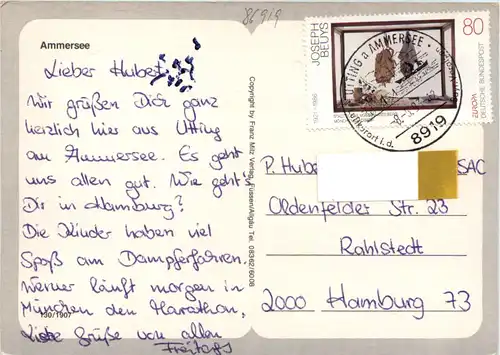 86919
Ammersee
Lieber Hubert
Wir grüßen Dich ganz
herzlich hier aus Utting
am Ammersee. Es geht
uns allen gut. Wie geht's
Dir in Hamburg?
Die Kinder haben viel
Spaß am Dampferfahren.
Werner läuft morgen in
München den Marathon.
Liebe Grüße von allen
Freitags
130/1907
Copyright by Franz Milz Verlag, Füssen/Allgäu Tel. 08362/6008
JOSEPH
BEUYS
1921 - 1986
80
EUROPA
DEUTSCHE BUNDESPOST
UTTING a AMMERSEE
8919
P. Hube SAC
Oldenfelder Str. 23
Rahlstedt
2000 Hamburg 73